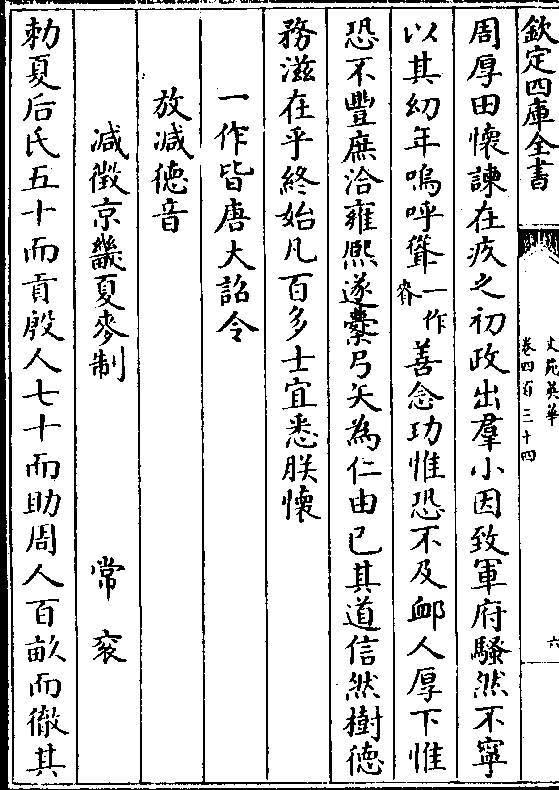 欽定四庫全書
文苑英華
卷四百三十四
六
周厚田懷諫在疚之初政出羣小因致軍府騷然不寧
以其幼年嗚呼聳一作眷善念功惟恐不及䘏人厚下惟
恐不豐庶洽雍熈遂櫜弓矢為仁由已其道信然樹徳
務滋在乎終始凡百多士宜悉朕懷
一作皆唐大詔令
放減徳音
減徵京畿夏麥制
常衮
勅夏后氏五十而貢殷人七十而助周人百畝而徹其